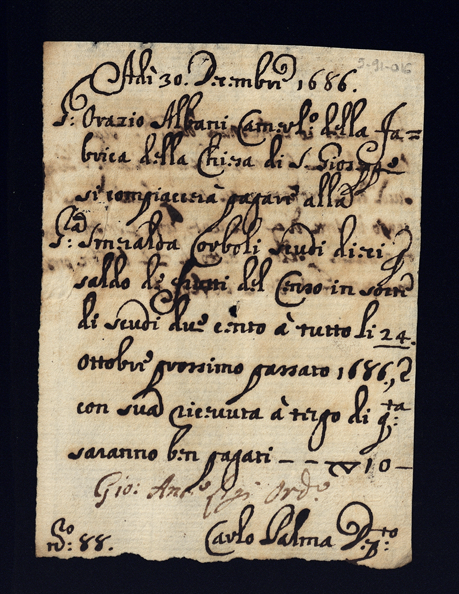 5-91-016
Adì 30. Decembre 1686.
Sr. Orazio Albani Camerlo. della Fa=
brica della Chiesa di S. Giorgio
si compiacerà pagare alla
Sra. Smeralda Corboli scudi dieci p
saldo de frutti del Censo in sorte
di scudi due cento à tutto li 24.
ottobre prossimo passato 1686, e
con sua ricevuta à tergo di qta.
saranno ben pagati — — ▽ 10 —
Gio: Anto. Ordo.
No. 88. Carlo Palma Dto.